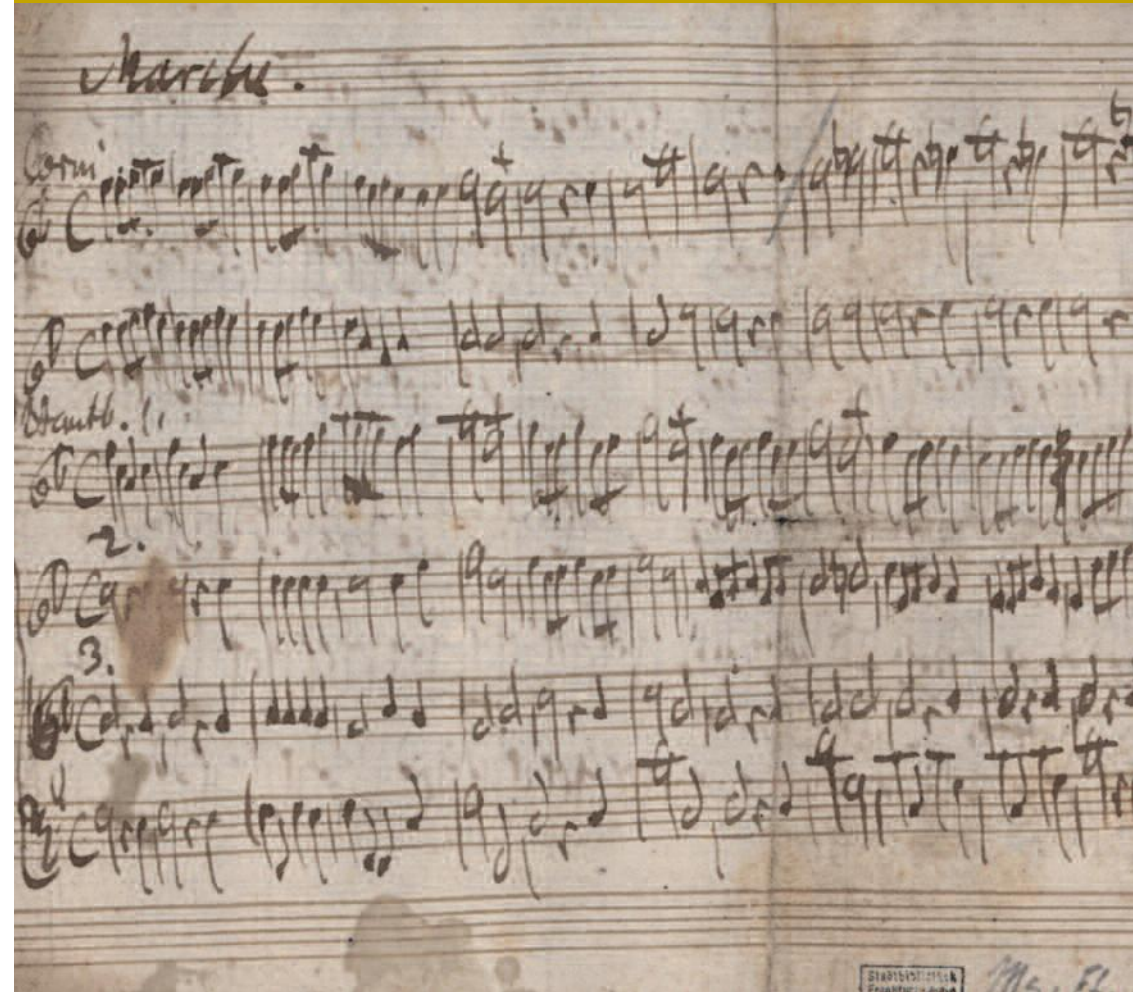 Marche.
Corni
Hautb. 1.
2.
3.
Stadtbibliothek
Frankfurt
Ms. Ff